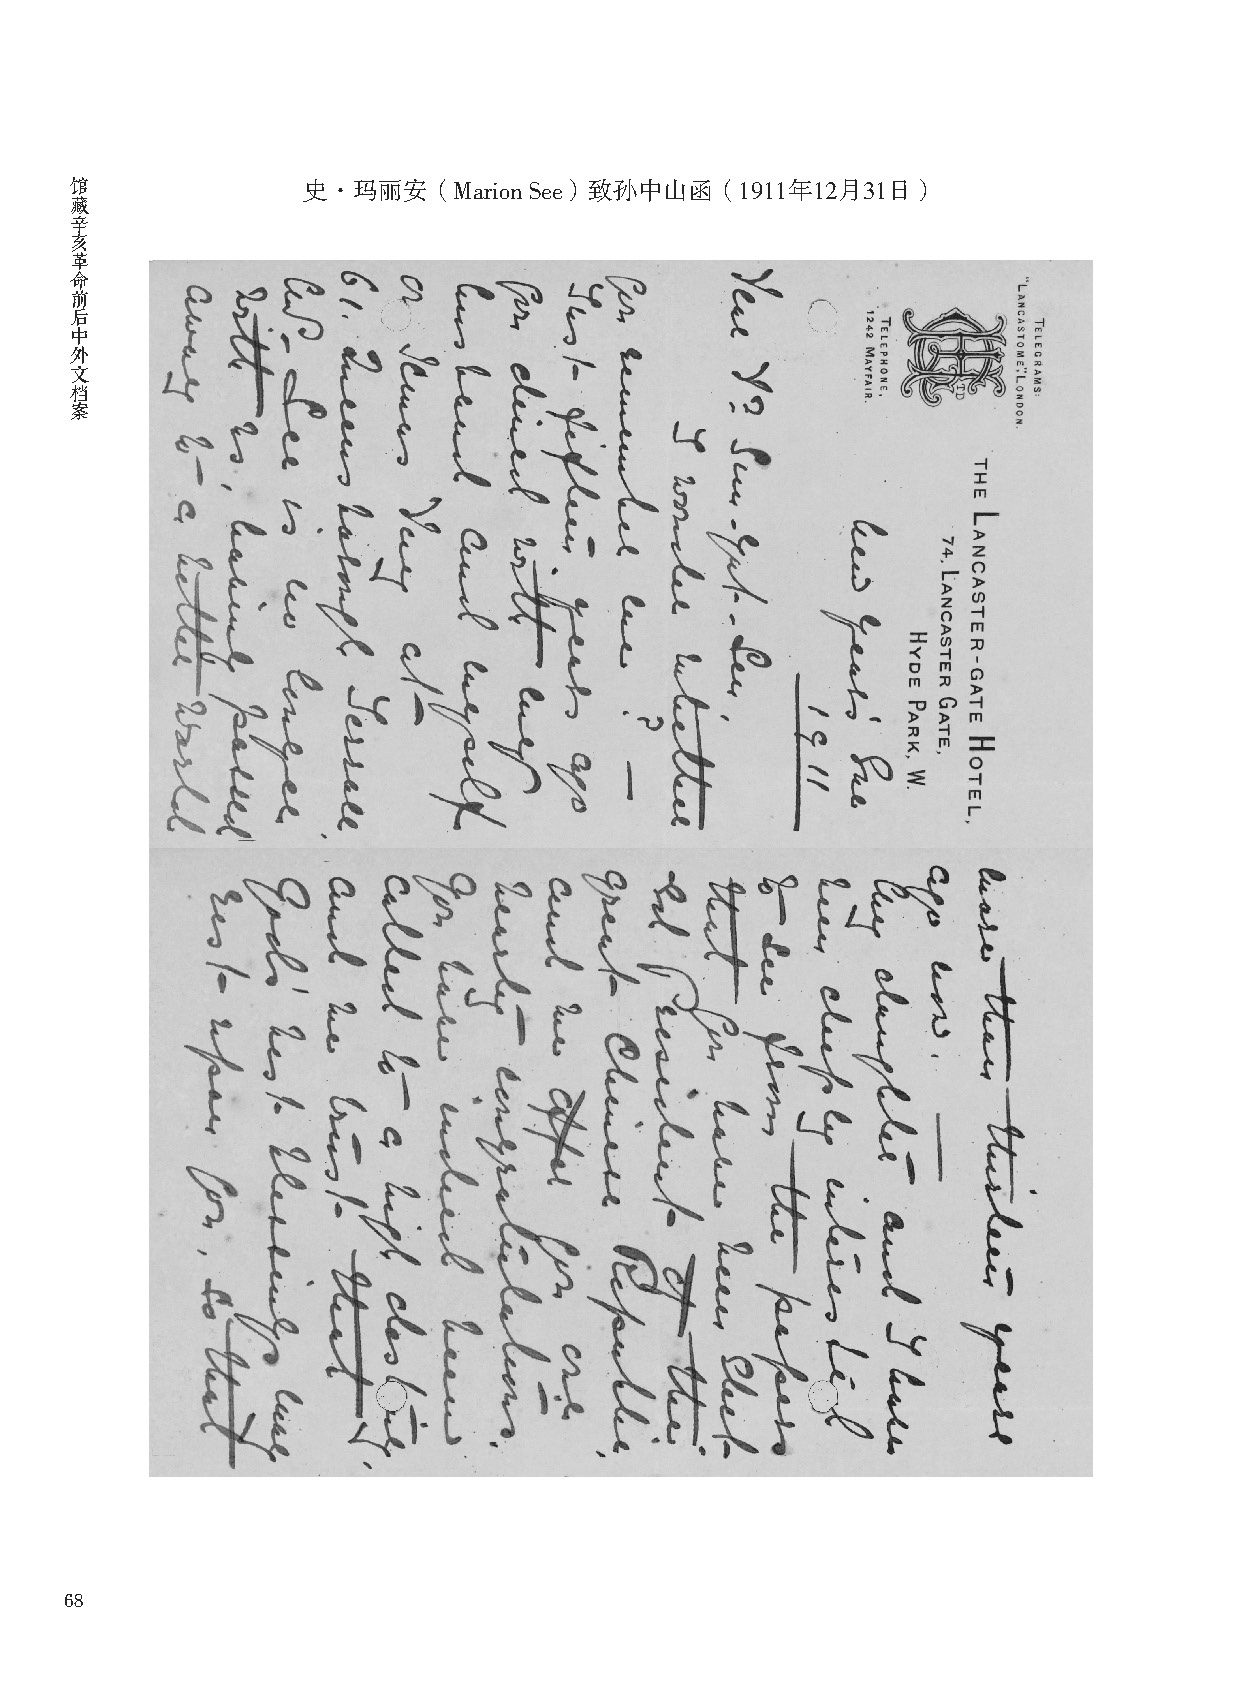 史·玛丽安（Marion See）致孙中山函（1911年12月31日）
馆藏辛亥革命前后中外文档案
TELEGRAMS:
"LANCASTOME," LONDON.
TELEPHONE,
1242 MAYFAIR.
THE LANCASTER-GATE HOTEL,
74, LANCASTER GATE,
HYDE PARK, W.
New Year's Eve
1911
Dear Dr Sun-Yat-Sen,
I wonder whether
you remember me? —
Just fifteen years ago
you dined with my
husband and myself
or Xmas Day at
61. Queensborough Terrace
but - See is no longer
with us, having passed
away to a better world
more than thirteen years
ago now. —
My daughter and I have
been deeply interested
to see from the papers
that you have been elect-
ed President of the
great Chinese Republic,
and we offer you our
hearty congratulations.
You have indeed been
called to a high destiny,
and we trust that
God's best blessings may
rest upon you, so that
68